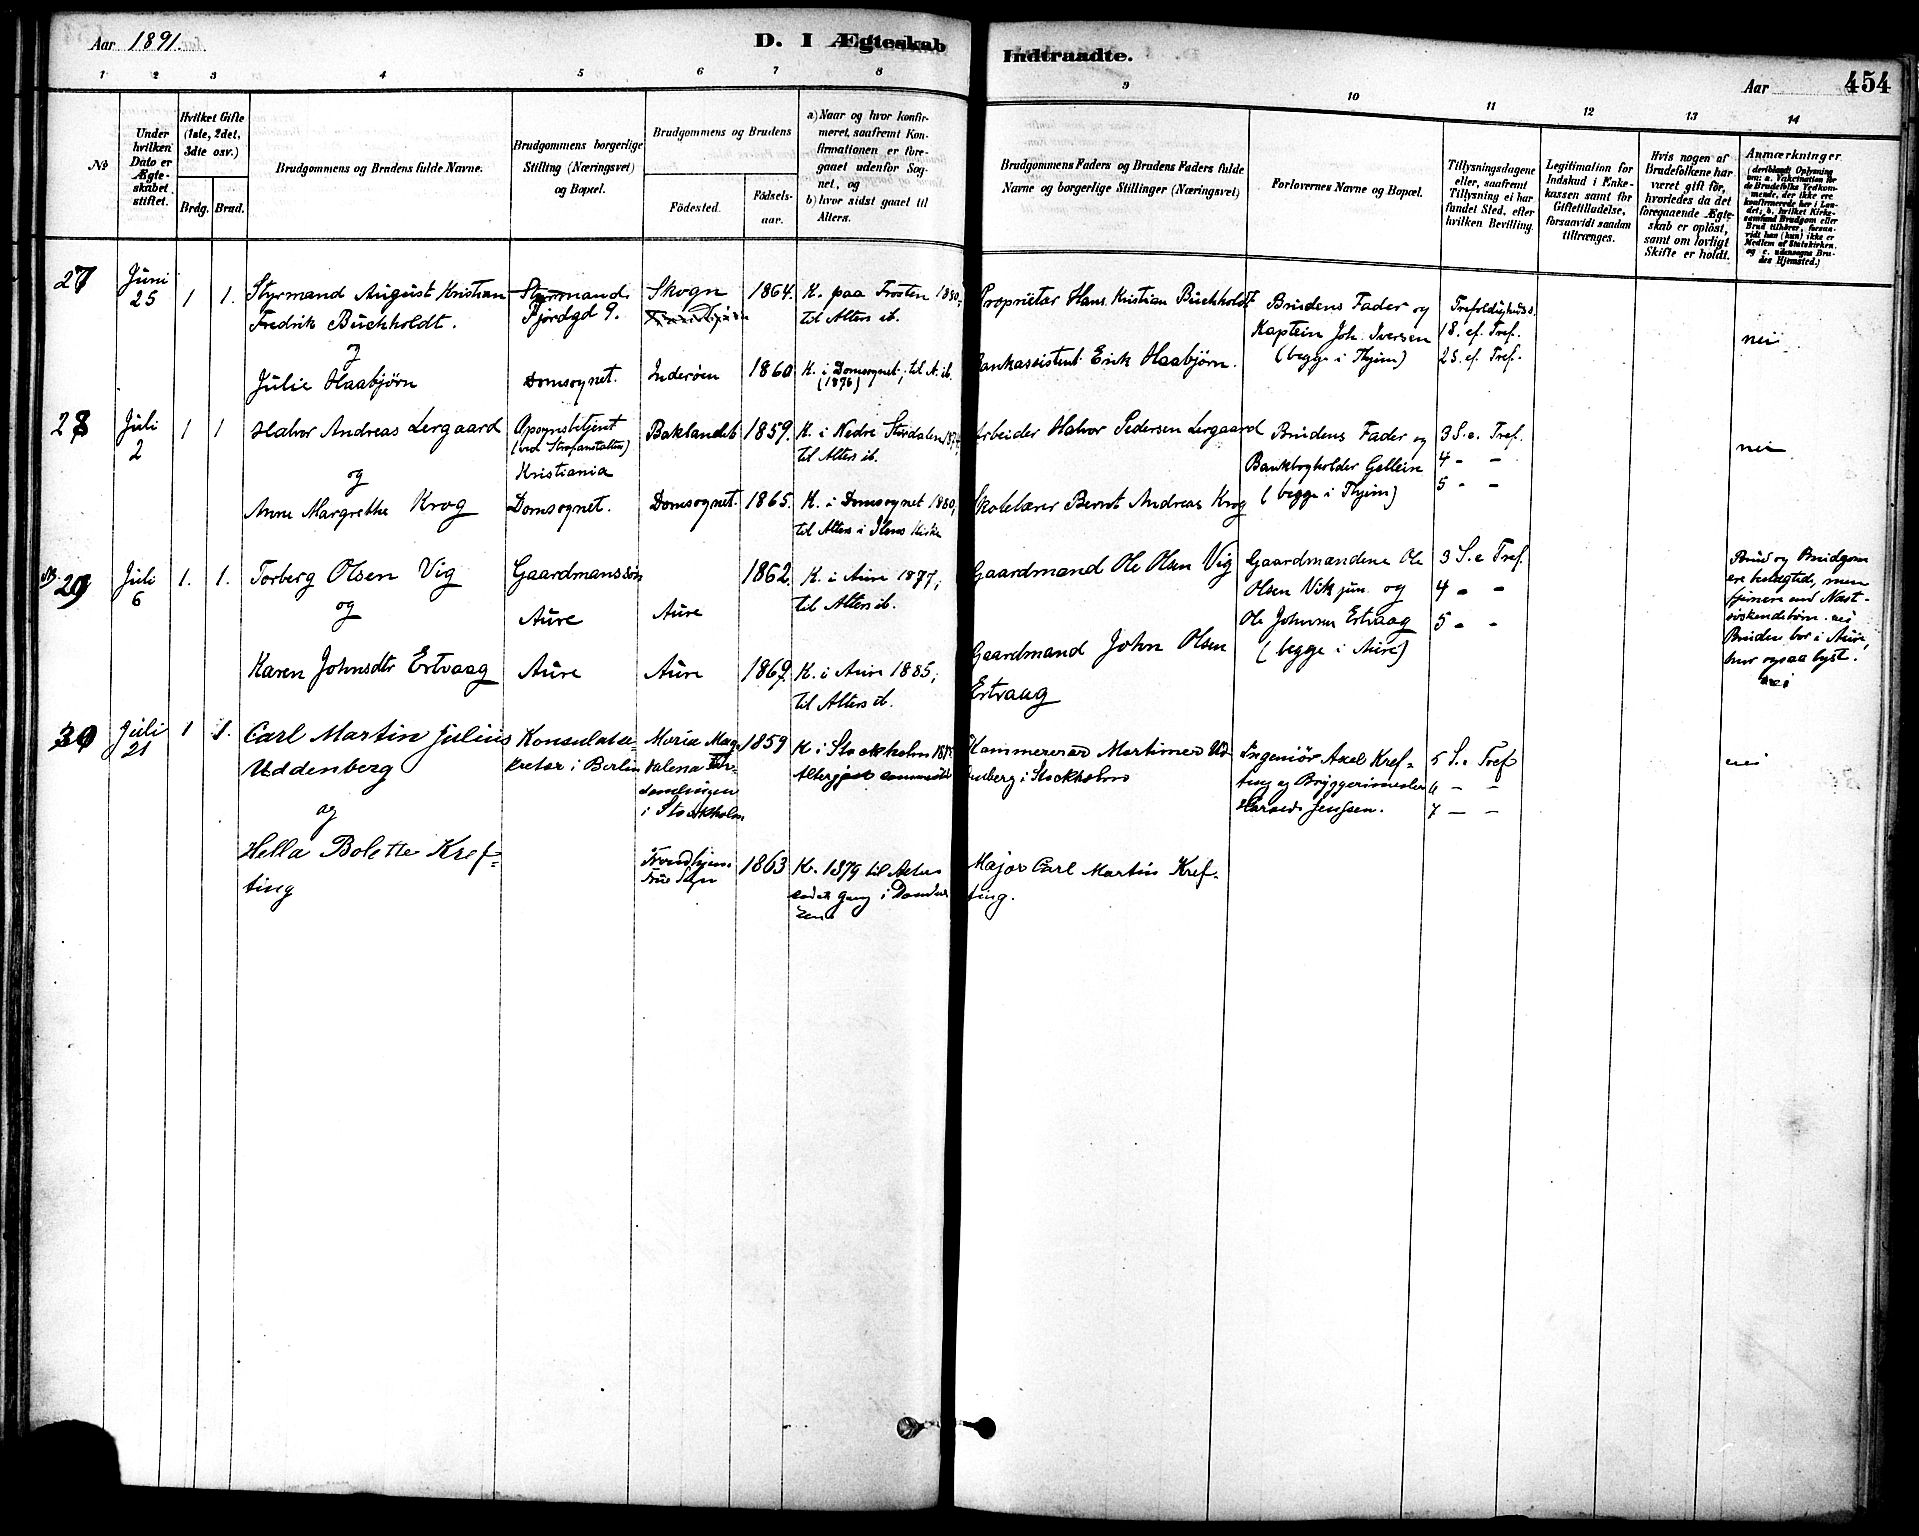 Aar 1891.
D. I Ægteskab Indtraadte.
Aar 454
1 2 3 4 5 6 7 8 9 10 11 12 13 14
No
Under hvilken Dato er Ægteskabet stiftet.
Hvilket Gifte (1ste, 2det, 3die osv.)
Brdg. Brud.
Brudgommens og Brudens fulde Navne.
Brudgommens borgerlige Stilling (Næringsvei) og Bopæl.
Brudgommens og Brudens
Födested.
Födselsaar.
a) Naar og hvor konfirmeret, saafremt Konfirmationen er foregaaet udenfor Sognet, og
b) hvor sidst gaaet til Alters.
Brudgommens Faders og Brudens Faders fulde Navne og borgerlige Stillinger (Næringsvei)
Forlovernes Navne og Bopæl.
Tillysningsdagene eller, saafremt Tillysning ei har fundet Sted, efter hvilken Bevilling.
Legitimation for Indskud i Enkekassen samt for Giftetilladelse, forsaavidt saadan tiltrænges.
Hvis nogen af Brudefolkene har været gift för, hvorledes da det foregaaende Ægteskab er oplöst, samt om lovligt Skifte er holdt.
Anmærkninger
27
Juni
25
1 1.
Styrmand August Kristian
Fredrik Buchholdt.
og
Julie Haabjørn
Styrmand.
Fjordgd 9.
Domsognet.
Skogn
Inderøen
1864.
1860
K. paa Frosten 1880;
til Alters ib.
K. i Domsognet; til A. ib.
(1876)
Proprietær Hans Kristian Buchholdt
Bankassistent Erik Haabjørn.
Brudens Fader og
Kaptein Joh. Iversen
(begge i Thjem)
Trefoldighedss.
18. ef. Tref.
25. ef. Tref.
nei
28
Juli
2
1 1
Halvor Andreas Lergaard
og
Anne Margrethe Krog
Opsynsbetjent
(ved Strafanstalten)
Kristiania
Domsognet.
Baklandet
Domsognet.
1859.
1865.
K. i Nedre Stjørdalen 1874,
til Alters ib.
K. i Domsognet 1880,
til Alters i Ilens Kirke
Arbeider Halvor Pedersen Lergaard
Skolelærer Bernt Andreas Krog
Brudens Fader og
Bankbogholder Gellein
(begge i Thjem)
3 S. e. Tref.
4 - -
5 - -
nei
29
Juli
6
1. 1.
Torberg Olsen Vig
og
Karen Johnsdtr Ertvaag
Gaardmanssøn
Aure
Aure
Aure
Aure
1862
1869.
K. i Aure 1877,
til Alters ib.
K. i Aure 1885,
til Alters ib.
Gaardmand Ole Olsen Vig
Gaardmand John Olsen
Ertvaag
Gaardmandene Ole
Olsen Vik jun. og
Ole Johnsen Ertvaag
(begge i Aure)
3 S. e Tref.
4 - -
5 - -
Brud og Brudgom
ere beslægtede, men
fjernere end Næst-
søskendebørn. nei
Bruden bor i Aure,
hvor ogsaa lyst.
nei
30
Juli
21
1 1.
Carl Martin Julius
Uddenberg
og
Hella Bolette Kref-
ting
Konsulatse-
kretær i Berlin
Maria Mag-
dalena För-
samlingen
i Stockholm
Trondhjem
Frue Sogn
1859
1863
K i Stockholm
K. 1879 til Alters
sidste gang i Domkir
Kammererar Mortimer Ud-
denberg i Stockholm
Major Carl Martin Kref-
ting.
Ingeniør Axel Kref-
ting og Bryggerimester
Harald Jenssen.
5 S. e Tref
6 - -
7 - -
nei